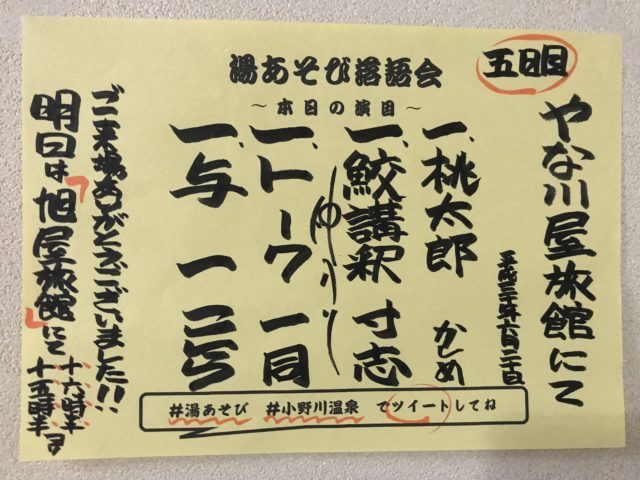 湯あそび落語会
～本日の演目～
五日目
やな川屋旅館にて
平成三十年六月二十日
一、桃太郎 かしめ
一、鮫講釈 寸志
一、トーク 一同
一、与一 こしら
ご来場ありがとうございました!!
明日は「旭屋旅館」にて
十六時半
十五時半
#湯あそび #小野川温泉 でツイートしてね